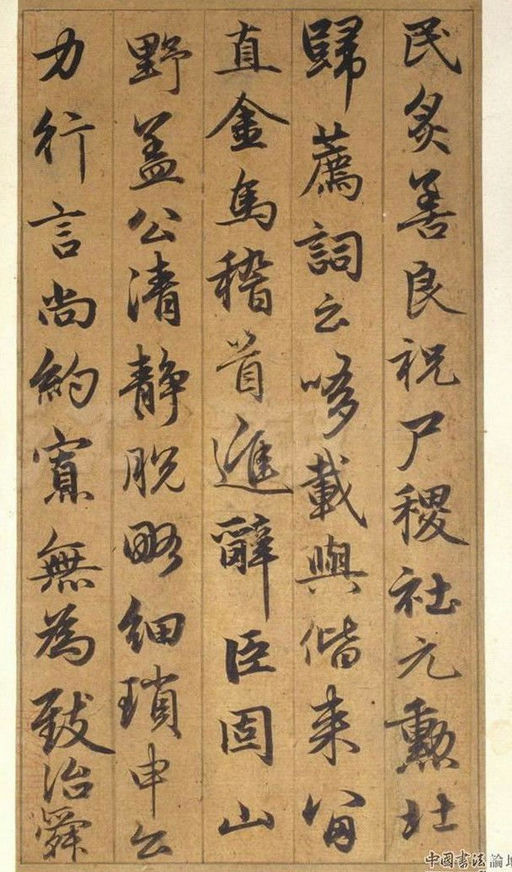 民炙善良祝尸稷社元勲壯
歸薦詞云嗲載與偕来容
直金馬稽首進辭臣固山
野盖公清静脱略細瑣申公
力行言尚約寡無為致治舜
中國書法論壇